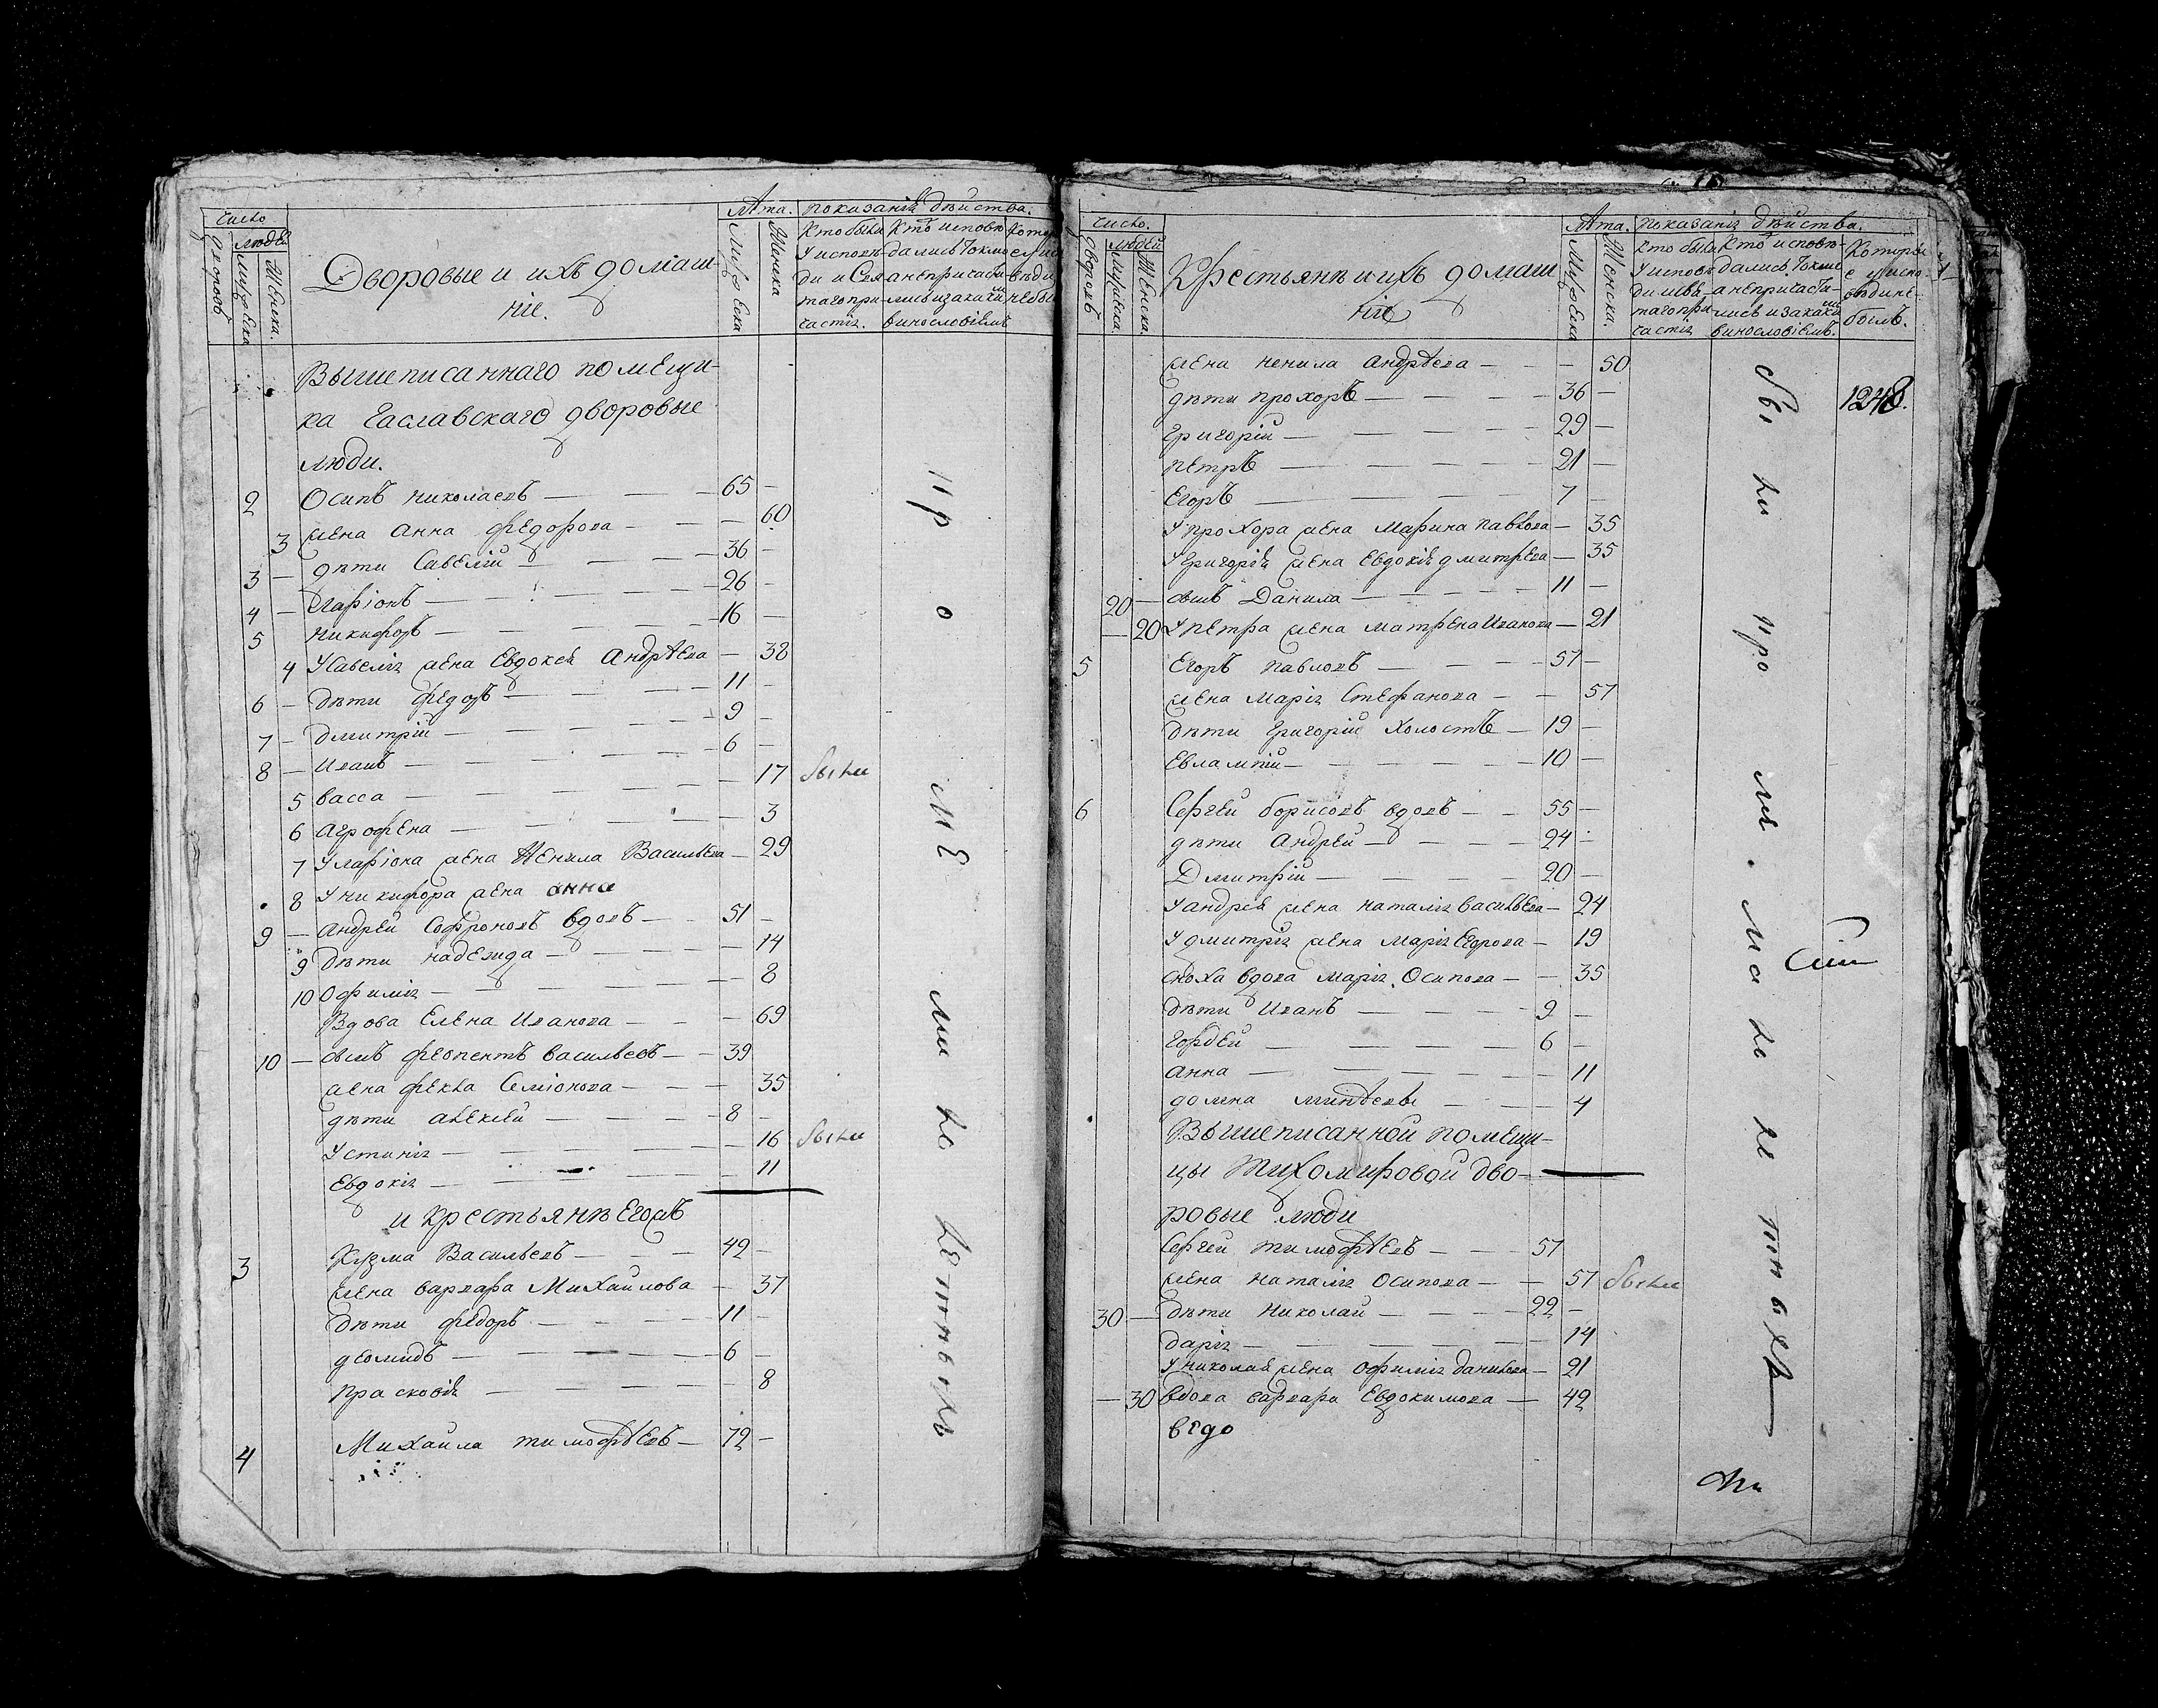 число
людей
дворовъ
мужеска
женска.
Дворовые и ихъ домаш
ніе.
Лѣта.
Мужеска
Женска
показаніи дѣйства.
Кто были
у исповѣ
ди и Свя
таго при
частія.
Кто исповѣ
дались токмо
а непричасти
лись и закаким
винословіемъ
Вышеписаннаго помещи-
ка Гаславскаго дворовые
люди.
2 Осипъ Николаевъ — 65 —
3 жена Анна Федорова — 60
3 — дѣти Савелій — 36 —
4 — Ларіонъ — 26 —
5 Никифоръ — 16 —
4 У Савелія жена Евдокея Андрѣева — 38
6 — дѣти Федоръ — 11 —
7 — Дмитрій — 9 —
8 — Иванъ — 6 —
5 Васса — 17 были
6 Агрофена — 3
7 У Ларіона жена Ненила Васильева — 29
8 У Никифора жена Анна
9 — Андрей Софроновъ вдовъ — 51 —
9 дѣти Надежда — 14
10 Офимія — 8
Вдова Елена Иванова — 69
10 — сынъ Феопентъ Васильевъ — 39
жена Фекла Семіонова — 35
дѣти Алексей — 8 —
Устинія — 16 были
Евдокія — 11
и крестьянѣ Егожъ
3 Кузма Васильевъ — 42 —
жена Варвара Михайлова — 37
дѣти Федоръ — 11 —
Деомидъ — 6 —
Прасковія — 8
4 Михайла Тимофѣевъ — 72 —
число.
людей
дворовъ
мужеска.
женска.
Крестьянѣ и ихъ домаш
ніе
Лѣта.
Мужеска
Женска.
показанія дѣйства.
кто были
у исповѣ
ди и свя
таго при
частія
Кто исповѣ-
дались токмо
а непричасти-
лись и закаким
винословіемъ.
Которы
е у испо
вѣди не-
были.
жена Ненила Андрѣева — 50
дѣти Прохоръ — 36 — 1248.
Григорій — 29 —
Петръ — 21 —
Егоръ — 7 —
У Прохора жена Марина Павлова — 35
У Григорія жена Евдокія Дмитрѣева — 35
20 — сынъ Данила — 11 —
— 20 У Петра жена Матрена Иванова — 21
5 Егоръ Павловъ — 57 —
жена Марія Стефанова — 57
дѣти Григорій холостъ — 19 —
Евлампій — 10 —
6 Сергей Борисовъ вдовъ — 55 —
дѣти Андрей — 24 —
Дмитрій — 20 —
У Андрея жена Наталія Васильева — 24
У Дмитрія жена Марія Егорова — 19
сноха вдова Марія Осипова — 35
дѣти Иванъ — 9 —
Гордей — 6 —
Анна — 11
Домна — 4
Вышеписанной помещи-
цы Тихомировой дво-
ровые люди
Сергей Тимофѣевъ — 57
жена Наталія Осипова — 57 были
30 — дѣти Николай — 22 —
Дарія — 14
У Николая жена Офимія Данилова — 21
— 30 вдова Варвара Евдокимова — 42
вѣдо